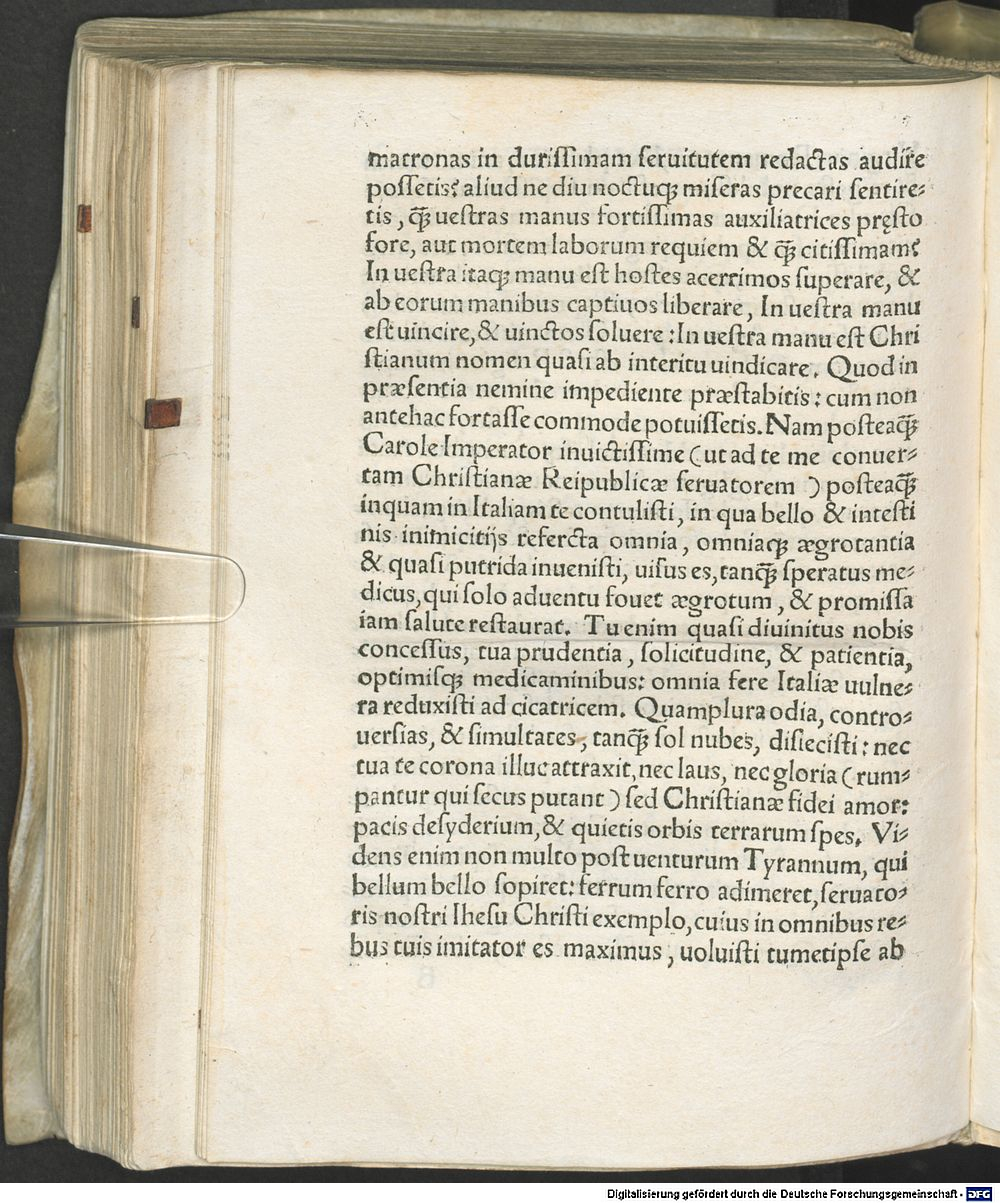 matronas in durissimam seruitutem redactas audire
possetis? aliud ne diu noctuqꝫ miseras precari sentire⸗
tis, qꝫ̄ uestras manus fortissimas auxiliatrices pręsto
fore, aut mortem laborum requiem & qꝫ̄ citissimam?
In uestra itaqꝫ manu est hostes acerrimos superare, &
ab eorum manibus captiuos liberare, In uestra manu
est uincire, & uinctos soluere: In uestra manu est Chri
stianum nomen quasi ab interitu uindicare. Quod in
præsentia nemine impediente præstabitis: cum non
antehac fortasse commode potuissetis. Nam posteaqꝫ̄
Carole Imperator inuictissime (ut ad te me conuer⸗
tam Christianæ Reipublicæ seruatorem) posteaqꝫ̄
inquam in Italiam te contulisti, in qua bello & intesti
nis inimicitijs referta omnia, omniaqꝫ ægrotantia
& quasi putrida inuenisti, uisus es, tanqꝫ̄ speratus me⸗
dicus, qui solo aduentu fouet ægrotum, & promissa
iam salute restaurat. Tu enim quasi diuinitus nobis
concessus, tua prudentia, solicitudine, & patientia,
optimisqꝫ medicaminibus: omnia fere Italiæ uulne⸗
ra reduxisti ad cicatricem. Quamplura odia, contro⸗
uersias, & simultates, tanqꝫ̄ sol nubes, disiecisti: nec
tua te corona illuc attraxit, nec laus, nec gloria (rum⸗
pantur qui secus putant) sed Christianæ fidei amor:
pacis desyderium, & quietis orbis terrarum spes. Vi⸗
dens enim non multo post uenturum Tyrannum, qui
bellum bello sopiret: ferrum ferro adimeret, seruato⸗
ris nostri Ihesu Christi exemplo, cuius in omnibus re⸗
bus tuis imitator es maximus, uoluisti tumetipse ab
Digitalisierung gefördert durch die Deutsche Forschungsgemeinschaft - DFG